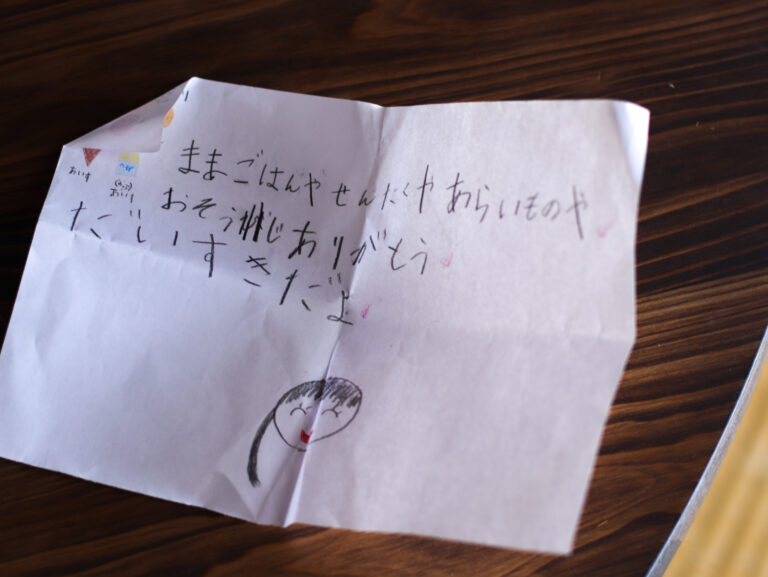 あいす
(かっぷ)
あいす
ままごはんやせんたくやあらいものや
おそうじありがとう
だいすきだよ